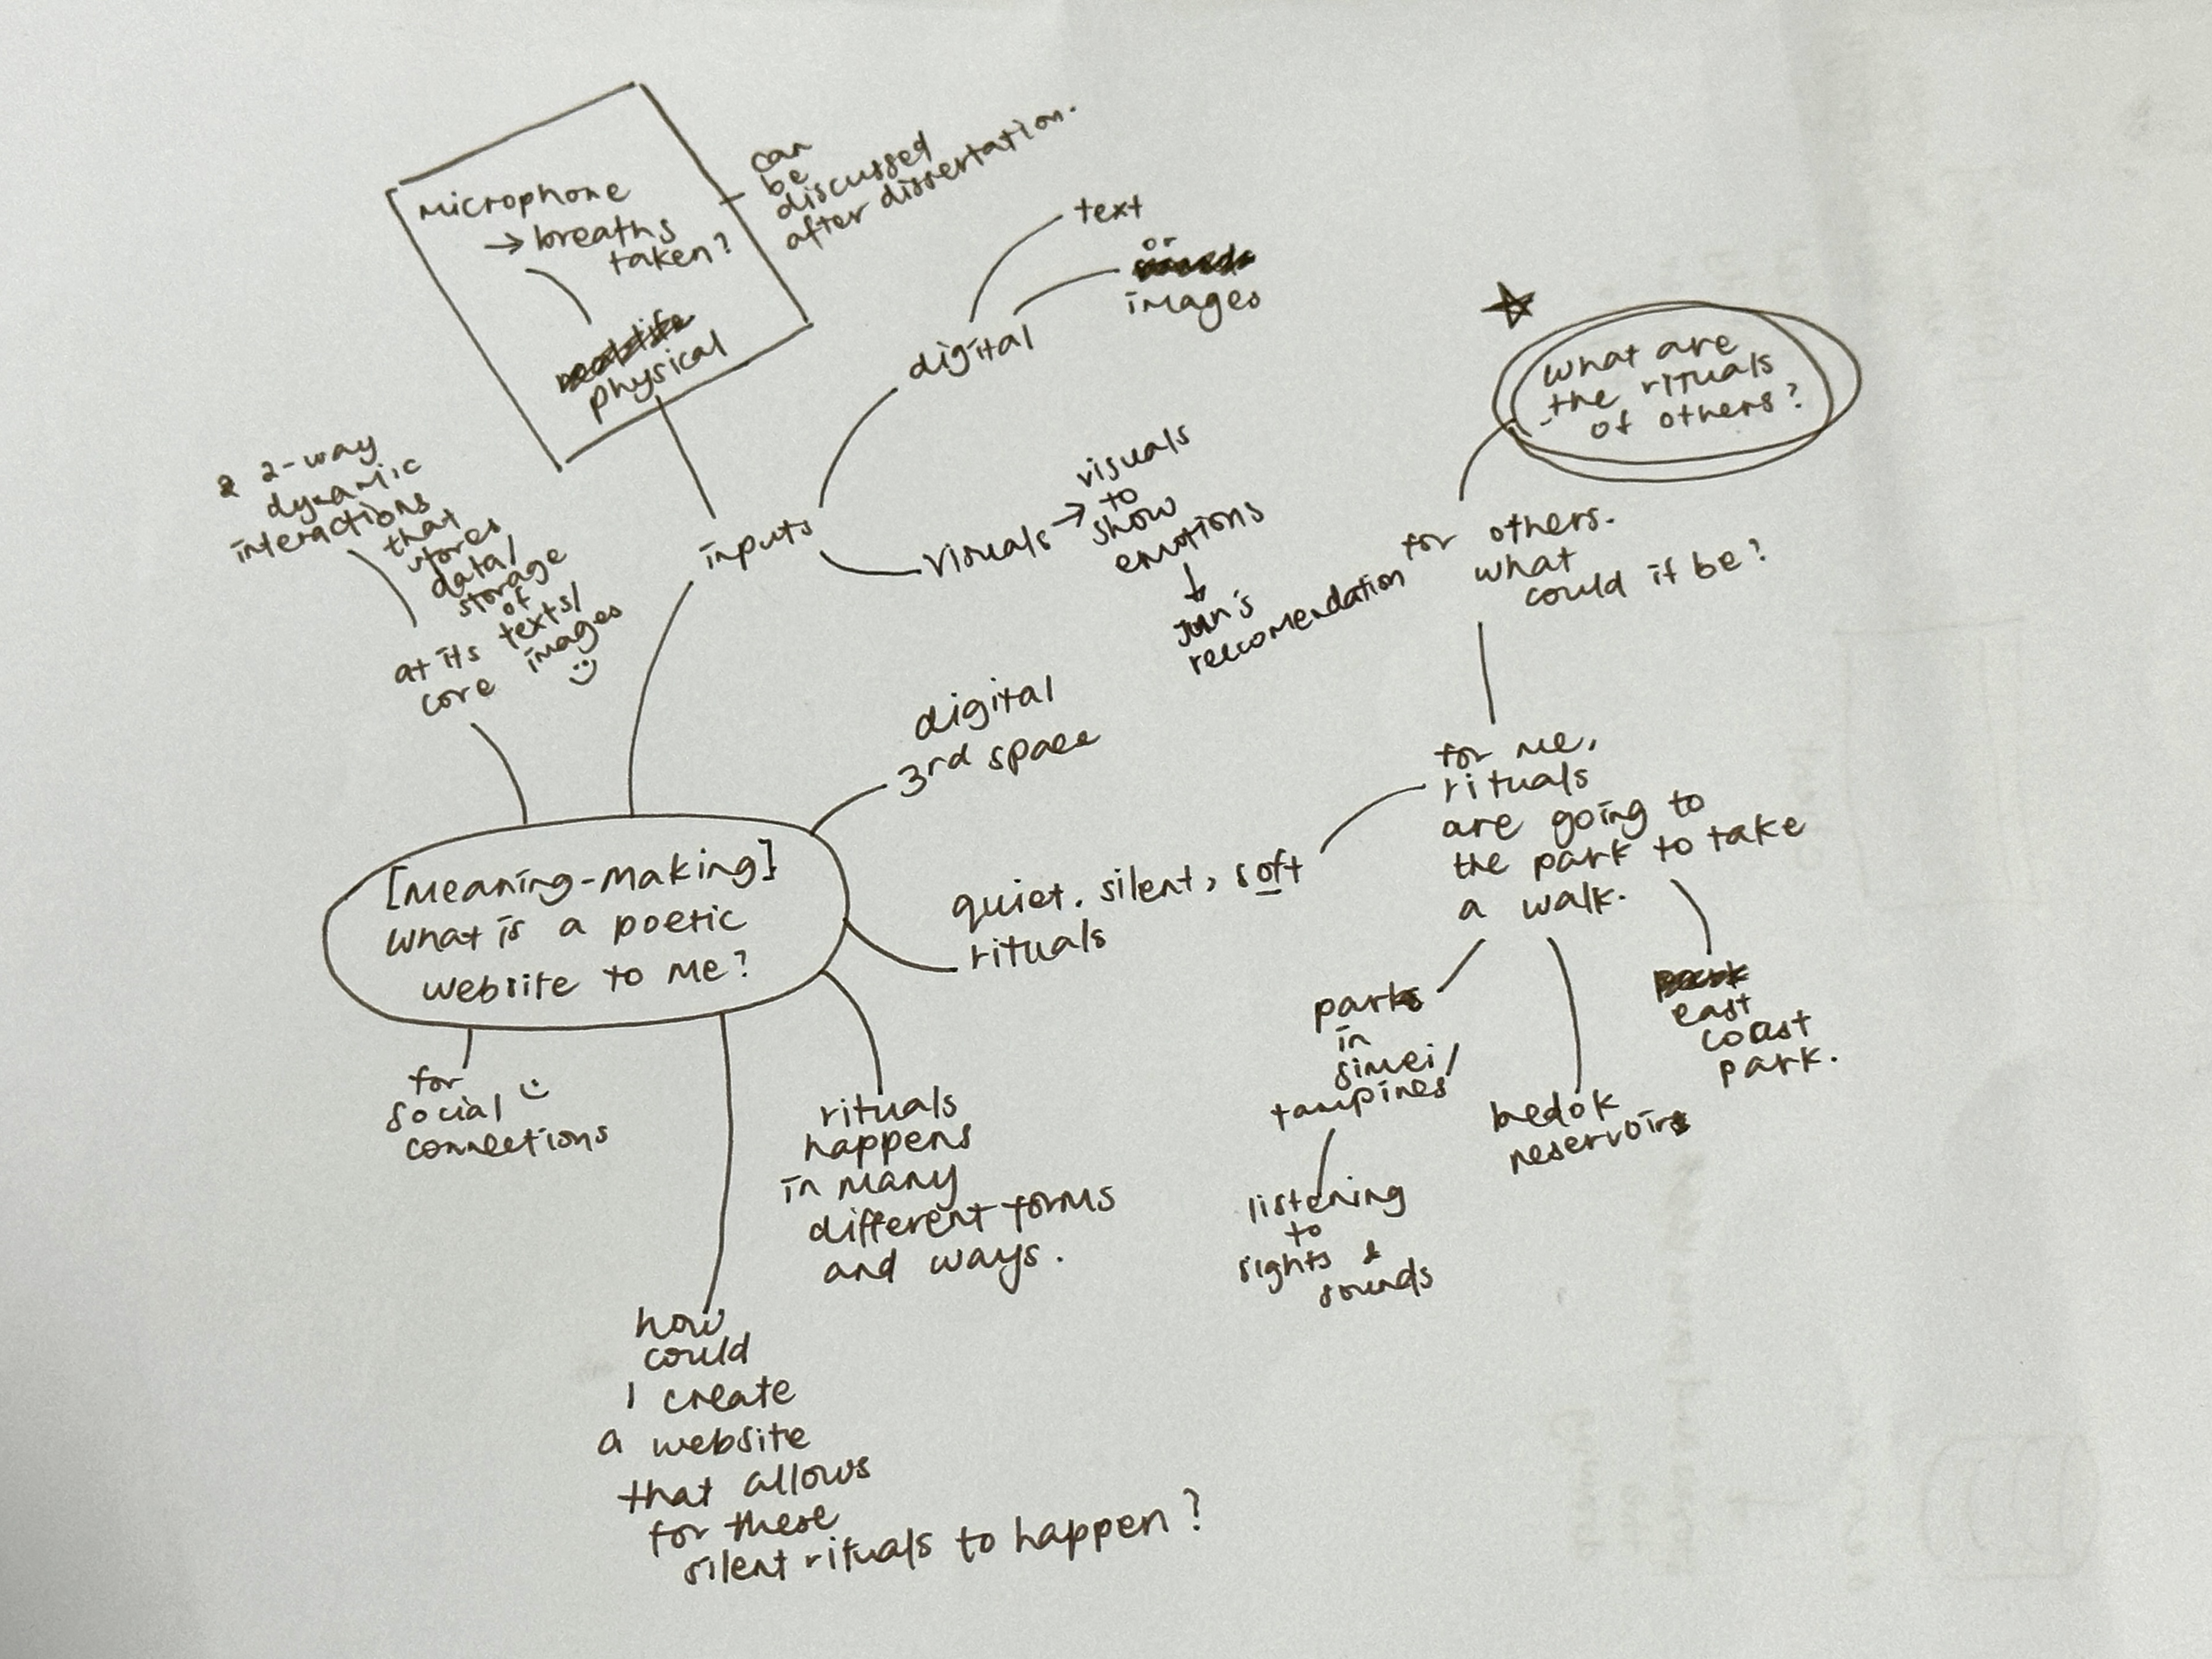 microphone
→ breaths
taken?
physical
can
be
discussed
after dissertation.
text
or
images
digital
inputs
visuals →
visuals
to
show
emotions
↓
Jun's
reccomendation
2-way
dynamic
interactions
that
stores
data/
storage
of
texts/
images
:)
at its
core
digital
3rd space
[Meaning-Making]
What is a poetic
website to me?
quiet, silent, soft
rituals
what are
the rituals
of others?
for others.
what
could it be?
for me,
rituals
are going to
the park to take
a walk.
parks
in
simei/
tampines
listening
to
sights &
sounds
bedok
reservoir
east
coast
park.
for
social :)
connections
rituals
happens
in many
different forms
and ways.
how
could
I create
a website
that allows
for these
silent rituals to happen?